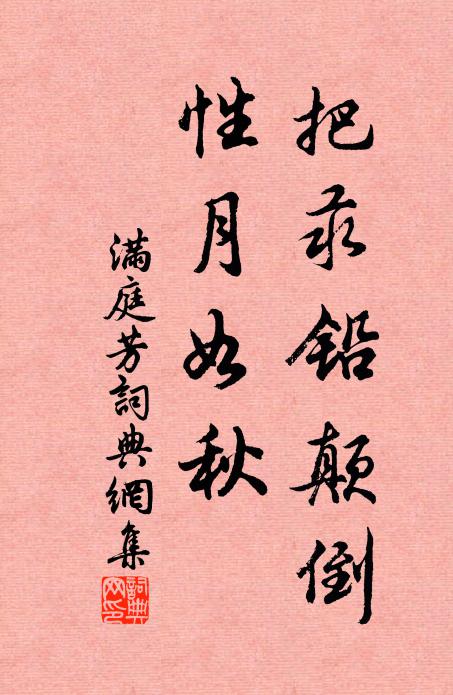 把汞鉛顛倒
性月如秋
滿庭芳詞典網集
詞典
网印